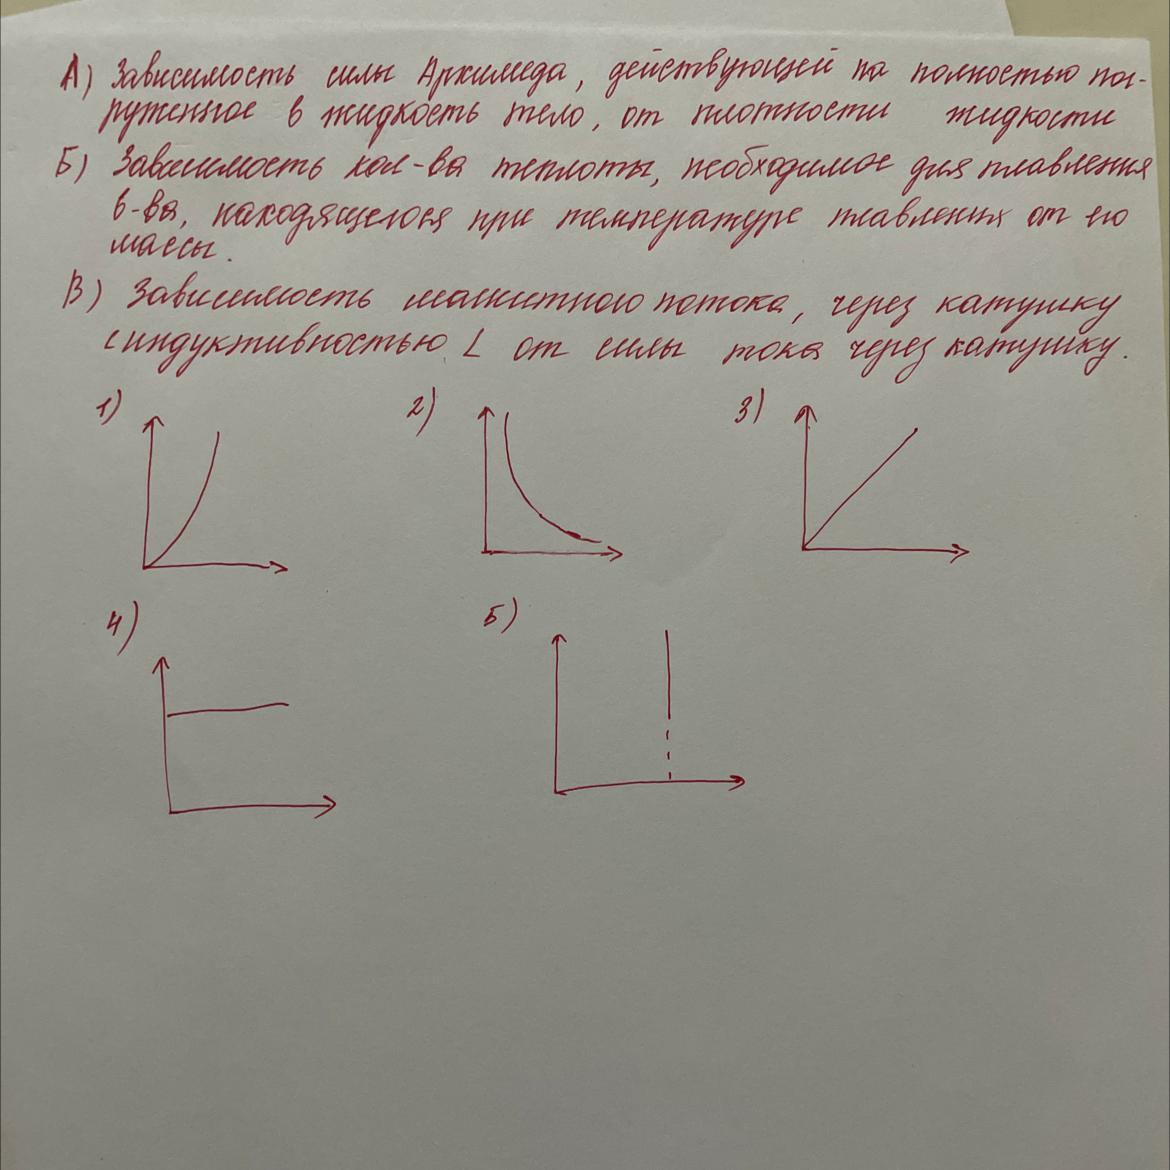 А) Зависимость силы Архимеда, действующей на полностью пог-
руженное в жидкость тело, от плотности жидкости
Б) Зависимость кол-ва теплоты, необходимое для плавления
в-ва, находящегося при температуре плавления от его
массы.
В) Зависимость магнитного потока, через катушку
с индуктивностью L от силы тока через катушку.
1) 2) 3)
4) 5)